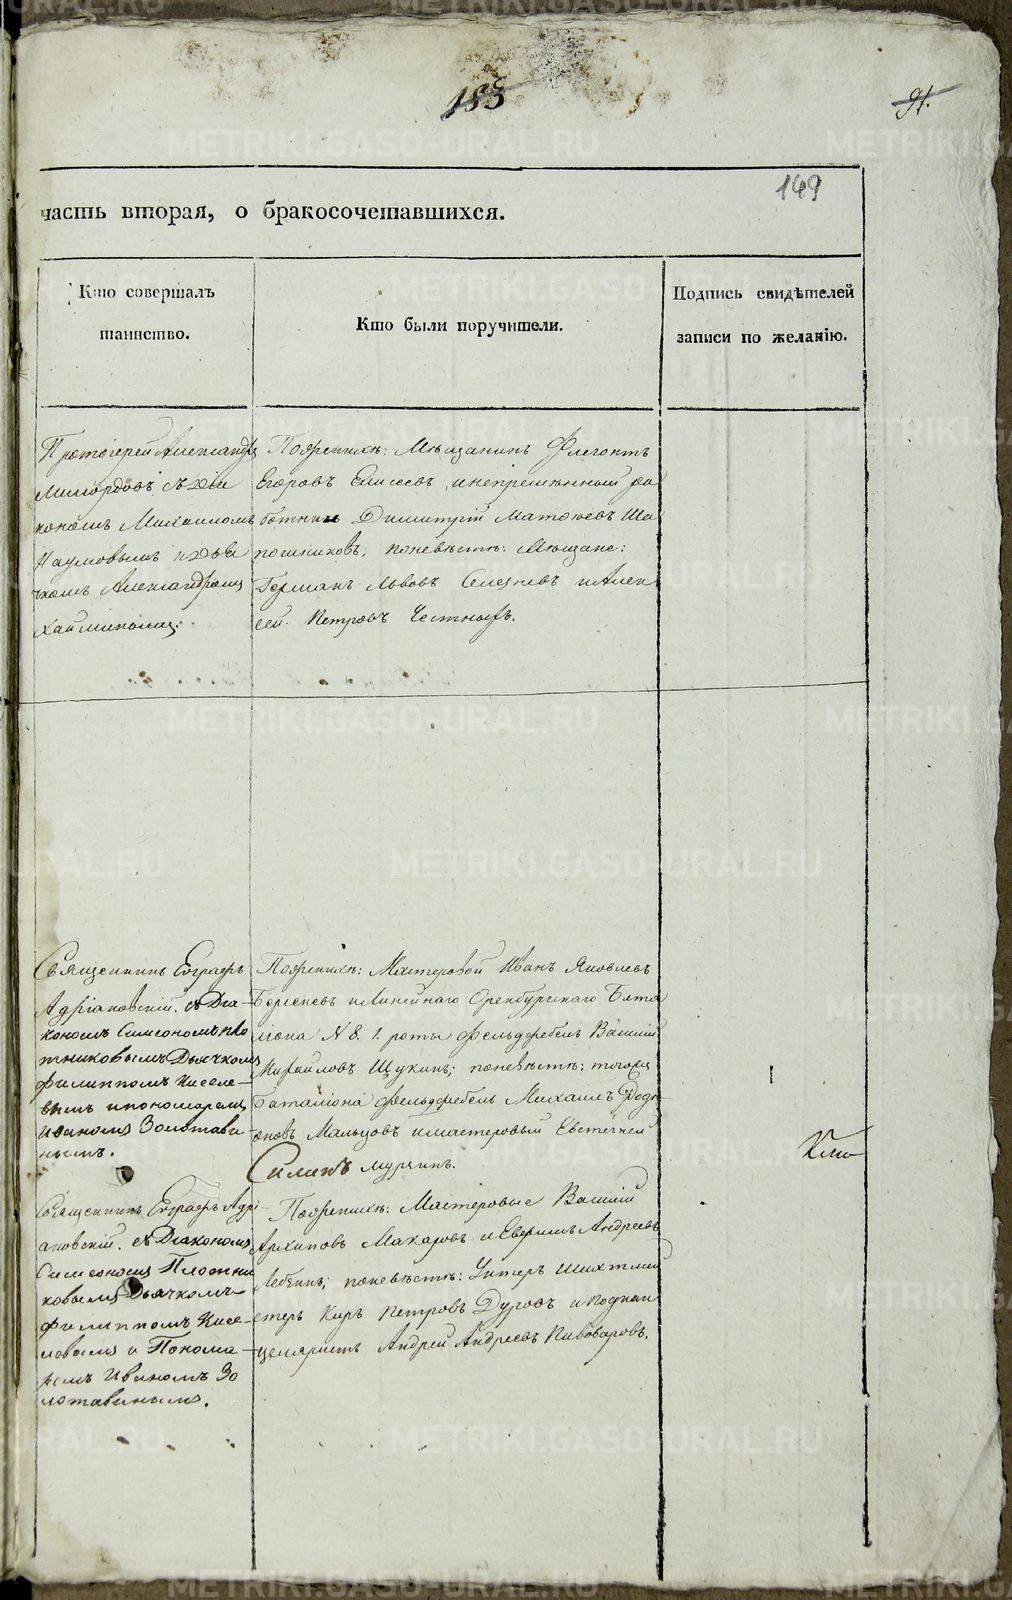 183
91.
149
часть вторая, о бракосочетавшихся.
Кто совершалъ
таинство.
Кто были поручители.
Подпись свидѣтелей
записи по желанію.
Протоіерей Александръ
Миловдовъ съ Діа
кономъ Михаиломъ
Наумовымъ и Дья
чкомъ Александромъ
Пожених&#1123;: Мѣщанинъ Флегонтъ
Егоровъ Елисеевъ и непремѣнный ра
ботникъ Димитрій Матвѣевъ Ша
пошниковъ; по невѣстѣ: Мѣщане:
Германъ Львовъ Селезневъ и Алек
сей Петровъ Честныхъ.
Священникъ Евграфъ
Адріановскій. съ Діа-
кономъ Симеономъ Пло
тниковымъ Дьячкомъ
Филиппомъ Киселе-
вымъ и пономаремъ
Иваномъ Золотави-
нымъ.
По женихѣ: Мастеровой Иванъ Яковлевъ
и Линейнаго Оренбургскаго Бата
ліона N 8. 1. роты фельдфебель Василій
Михайловъ Щукинъ; по невѣстѣ: тогожъ
баталіона фельдфебель Михаилъ Доду
оновъ Мальцовъ и мастеровый Евстигней
Силинъ Мурзинъ.
Священникъ Евграфъ Адрі-
ановскій. съ Діакономъ
Симеономъ Плотни
ковымъ Дьячкомъ
Филиппомъ Кисе-
левымъ и Понома-
ремъ Иваномъ Зо
лотавинымъ.
По женихѣ: Мастеровые Василій
Архиповъ Макаровъ и Андреевъ
по невѣстѣ: Унтеръ Шихтмей
стеръ Киръ Петровъ Дуровъ и Подкан
целяристъ Андрей Андреевъ Пивоваровъ.
METRIKI.GASO-URAL.RU